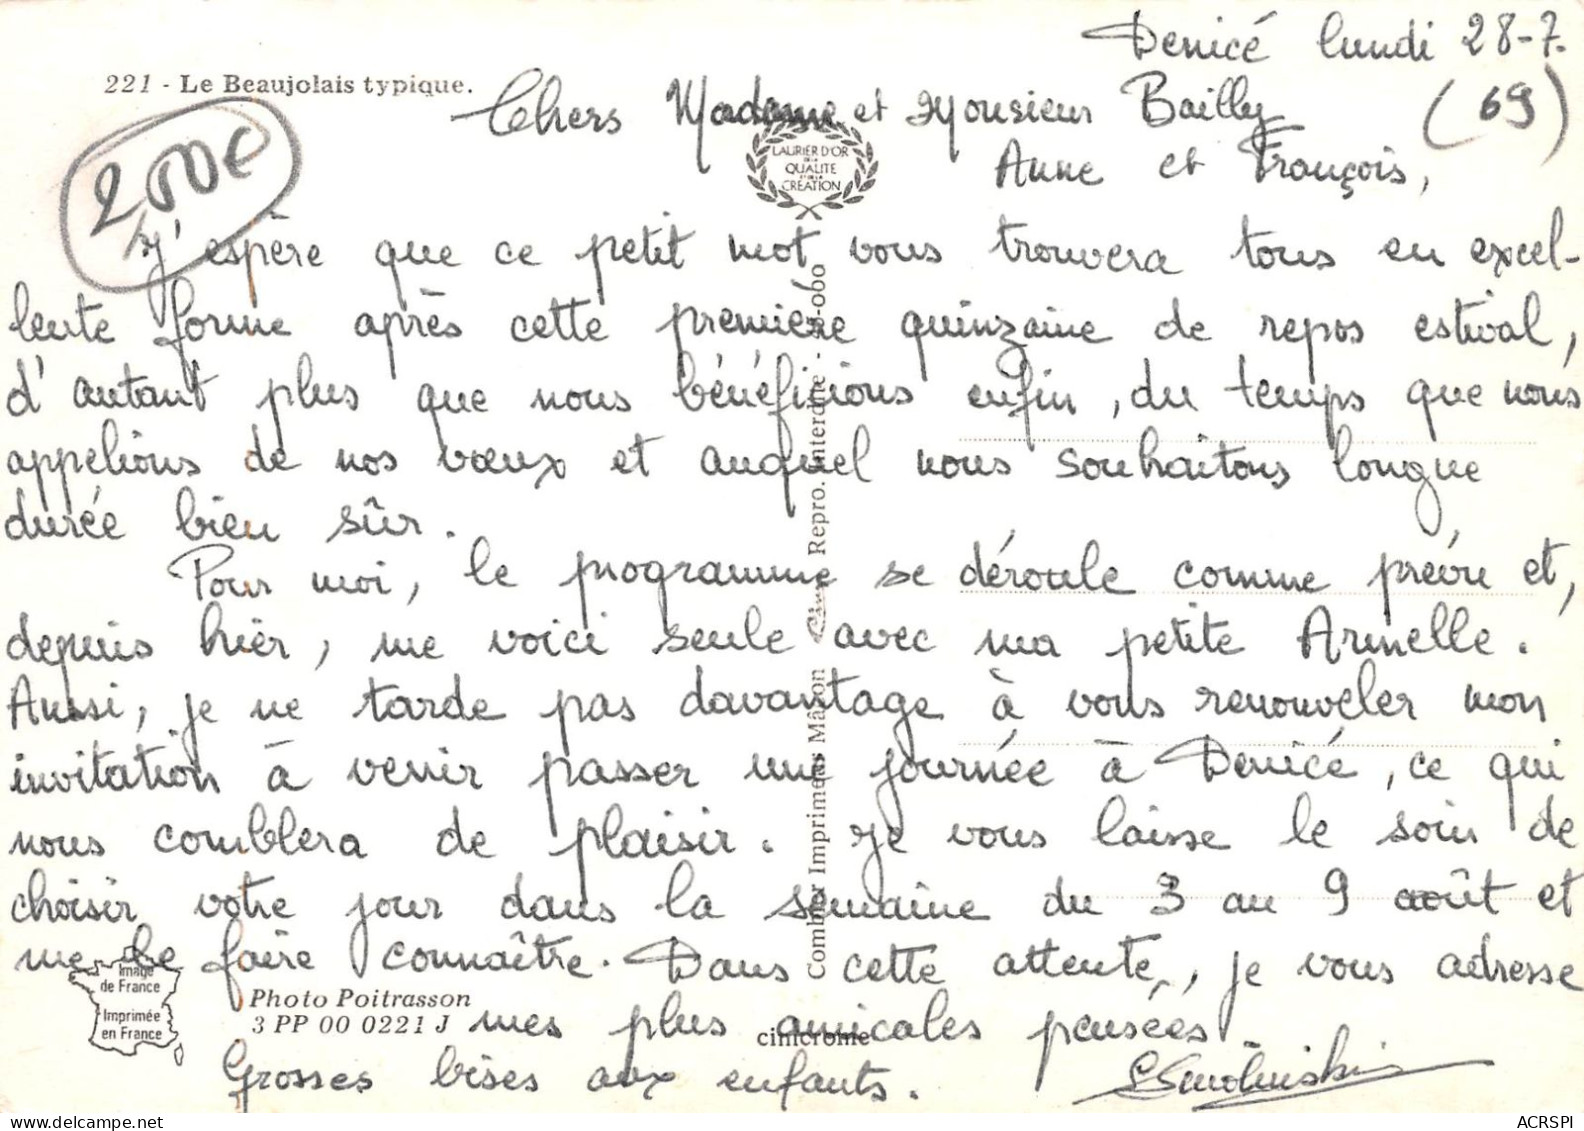 Denicé lundi 28-7.
221 - Le Beaujolais typique.
Chers Madame et Monsieur Bailly (69)
Anne et François,
LAURIER D'OR
DE LA
QUALITE
ET DE LA
CRÉATION
2,00€
J'espère que ce petit mot vous trouvera tous en excel-
lente forme après cette première quinzaine de repos estival,
d'autant plus que nous bénéficions enfin, du temps que nous
appelions de nos vœux et auquel nous souhaitons longue
durée bien sûr.
Pour moi, le programme se déroule comme prévu et,
depuis hier, me voici seule avec ma petite Armelle.
Aussi, je ne tarde pas davantage à vous renouveler mon
invitation à venir passer une journée à Denicé, ce qui
nous comblera de plaisir. Je vous laisse le soin de
choisir votre jour dans la semaine du 3 au 9 août et
me le faire connaître. Dans cette attente, je vous adresse
mes plus amicales pensées.
Grosses bises aux enfants.
Combier Imprimeur Mâcon Repro. interdite
Image
de France
Imprimée
en France
Photo Poitrasson
3 PP 00 0221 J
cimcrome
ACRSPI